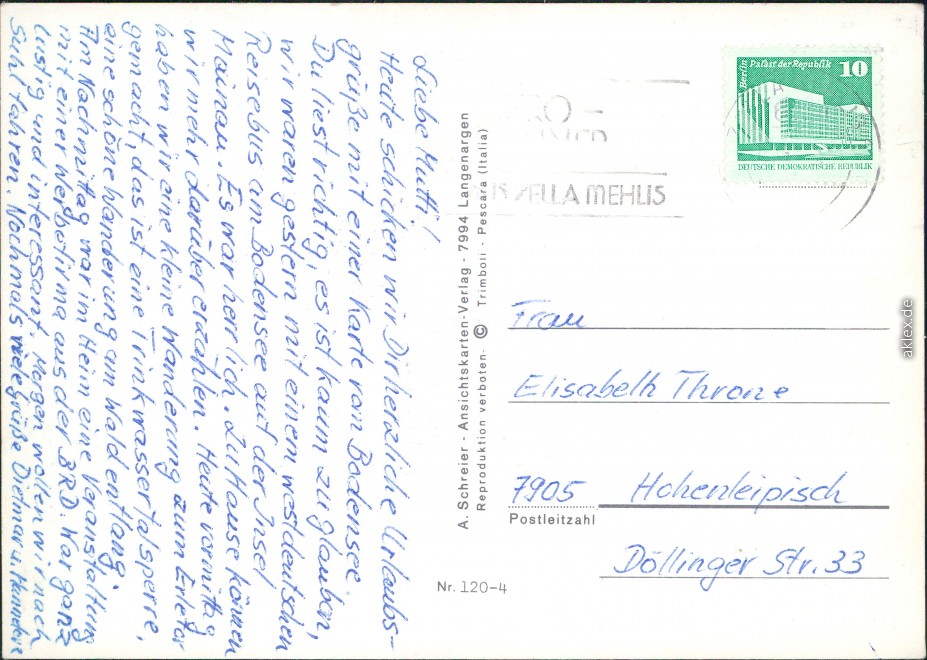 Liebe Mutti!
Heute schicken wir Dir herzliche Urlaubs-
grüße mit einer Karte vom Bodensee.
Du liest richtig, es ist kaum zu glauben,
wir waren gestern mit einem westdeutschen
Reisebus am Bodensee auf der Insel
Mainau. Es war herrlich. Zu Hause können
wir mehr darüber erzählen. Heute vormittag
haben wir eine kleine Wanderung zum Erletor
gemacht, das ist eine Trinkwassertalsperre,
eine schöne Wanderung am Wald entlang.
Am Nachmittag war im Heim eine Veranstaltung
mit einer Werbefirma aus der BRD. War ganz
lustig und interessant. Morgen wollen wir nach
Suhl fahren. Nochmals viele Grüße Dietmar u. Hannelore
A. Schreier - Ansichtskarten-Verlag - 7994 Langenargen
Reproduktion verboten - © Trimboli - Pescara (Italia)
Berlin Palast der Republik 10
DEUTSCHE DEMOKRATISCHE REPUBLIK
ZELLA MEHLIS
Frau
Elisabeth Throne
7905 Hohenleipisch
Postleitzahl
Döllinger Str. 33
Nr. 120-4
aklex.de